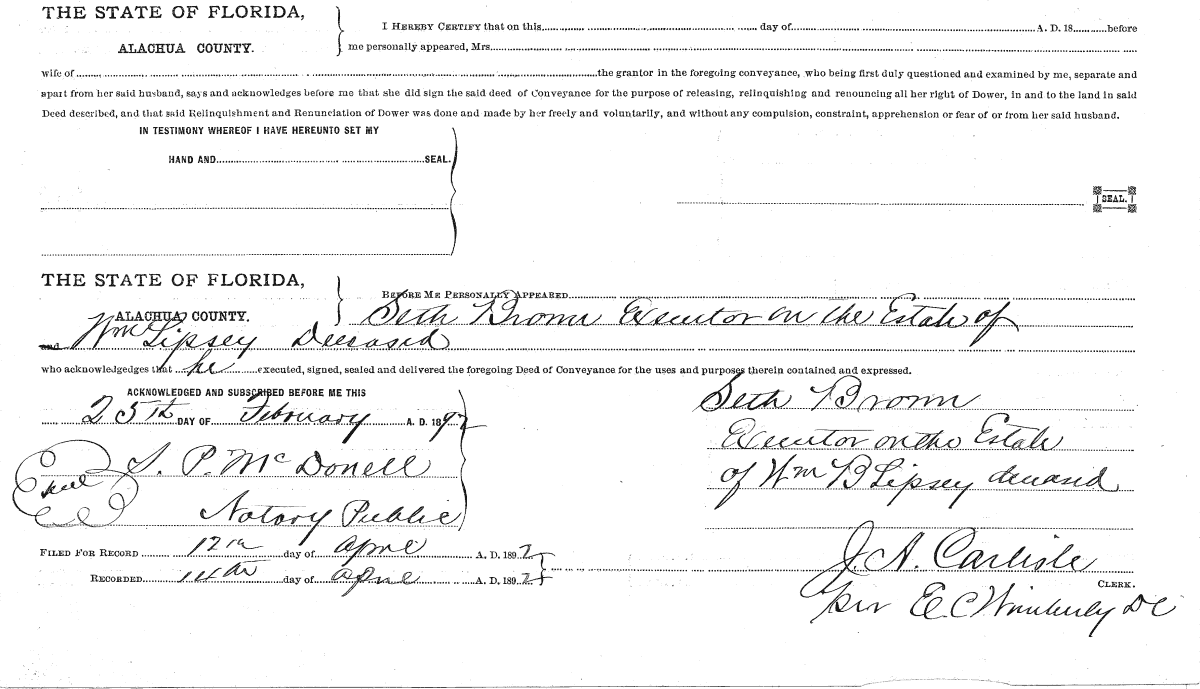 THE STATE OF FLORIDA,
ALACHUA COUNTY.
I HEREBY CERTIFY that on this day of A. D. 18 before
me personally appeared, Mrs.
wife of the grantor in the foregoing conveyance, who being first duly questioned and examined by me, separate and
apart from her said husband, says and acknowledges before me that she did sign the said deed of Conveyance for the purpose of releasing, relinquishing and renouncing all her right of Dower, in and to the land in said
Deed described, and that said Relinquishment and Renunciation of Dower was done and made by her freely and voluntarily, and without any compulsion, constraint, apprehension or fear of or from her said husband.
IN TESTIMONY WHEREOF I HAVE HEREUNTO SET MY
HAND AND SEAL.
SEAL.
THE STATE OF FLORIDA,
ALACHUA COUNTY.
BEFORE ME PERSONALLY APPEARED
Seth Brown Executor on the Estate of
and Wm Lipsey Deceased
who acknowledgedges that he executed, signed, sealed and delivered the foregoing Deed of Conveyance for the uses and purposes therein contained and expressed.
ACKNOWLEDGED AND SUBSCRIBED BEFORE ME THIS
25th DAY OF February A. D. 1892
seal S. P. McDonell
Notary Public
Seth Brown
Executor on the Estate
of Wm B Lipsey deceased
FILED FOR RECORD 12th day of April A. D. 1892
RECORDED 14th day of April A. D. 1892
J. A. Carlisle
CLERK.
per E C Wimberly DC